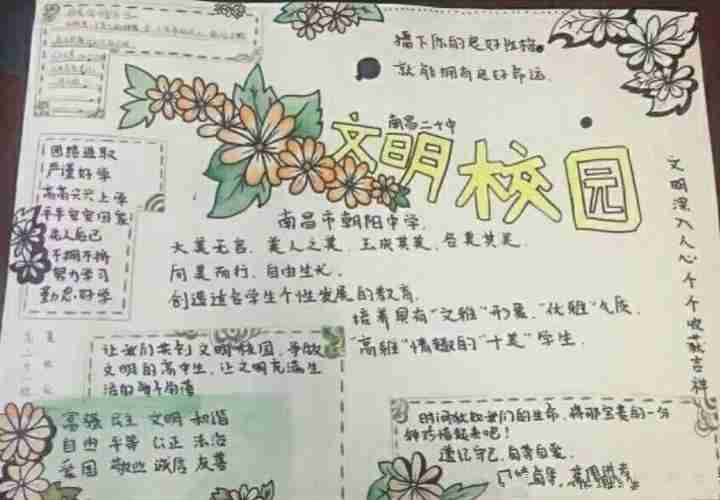 播下你的良好性格
就能拥有良好命运.
南昌二十中
文明校园
团结进取
严谨好学
高高兴兴上学
平平安安回家
关人自己
不拥不挤
努力学习
勤思好学
南昌市朝阳中学.
大美无言. 美人之美. 玉成其美. 各美其美.
向美而行. 自由生长.
创造适合学生个性发展的教育.
培养具有"文雅"形象. "优雅"气质.
"高雅"情趣的"十美"学生.
文明深入人心个个收获吉祥
让我们共创文明校园. 争做
文明的高中生. 让文明充满生
活的每个角落
富强 民主 文明 和谐
自由 平等 公正 法治
爱国 敬业 诚信 友善
时间就是我们的生命. 将那宝贵的一分
钟珍惜起来吧!
谨记守己. 自尊自爱.